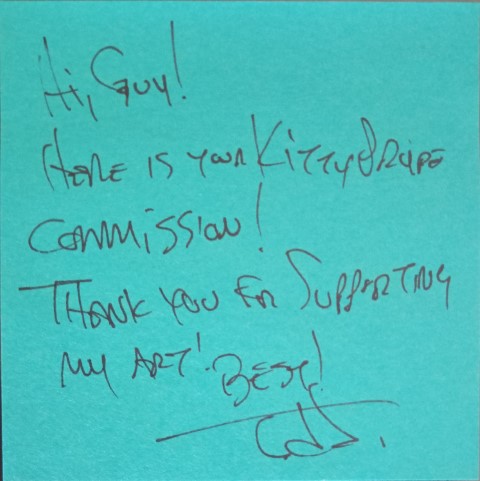 Hi, Guy!
Here is your Kitty Pryde
Commission!
Thank you for Supporting
my art! Best!